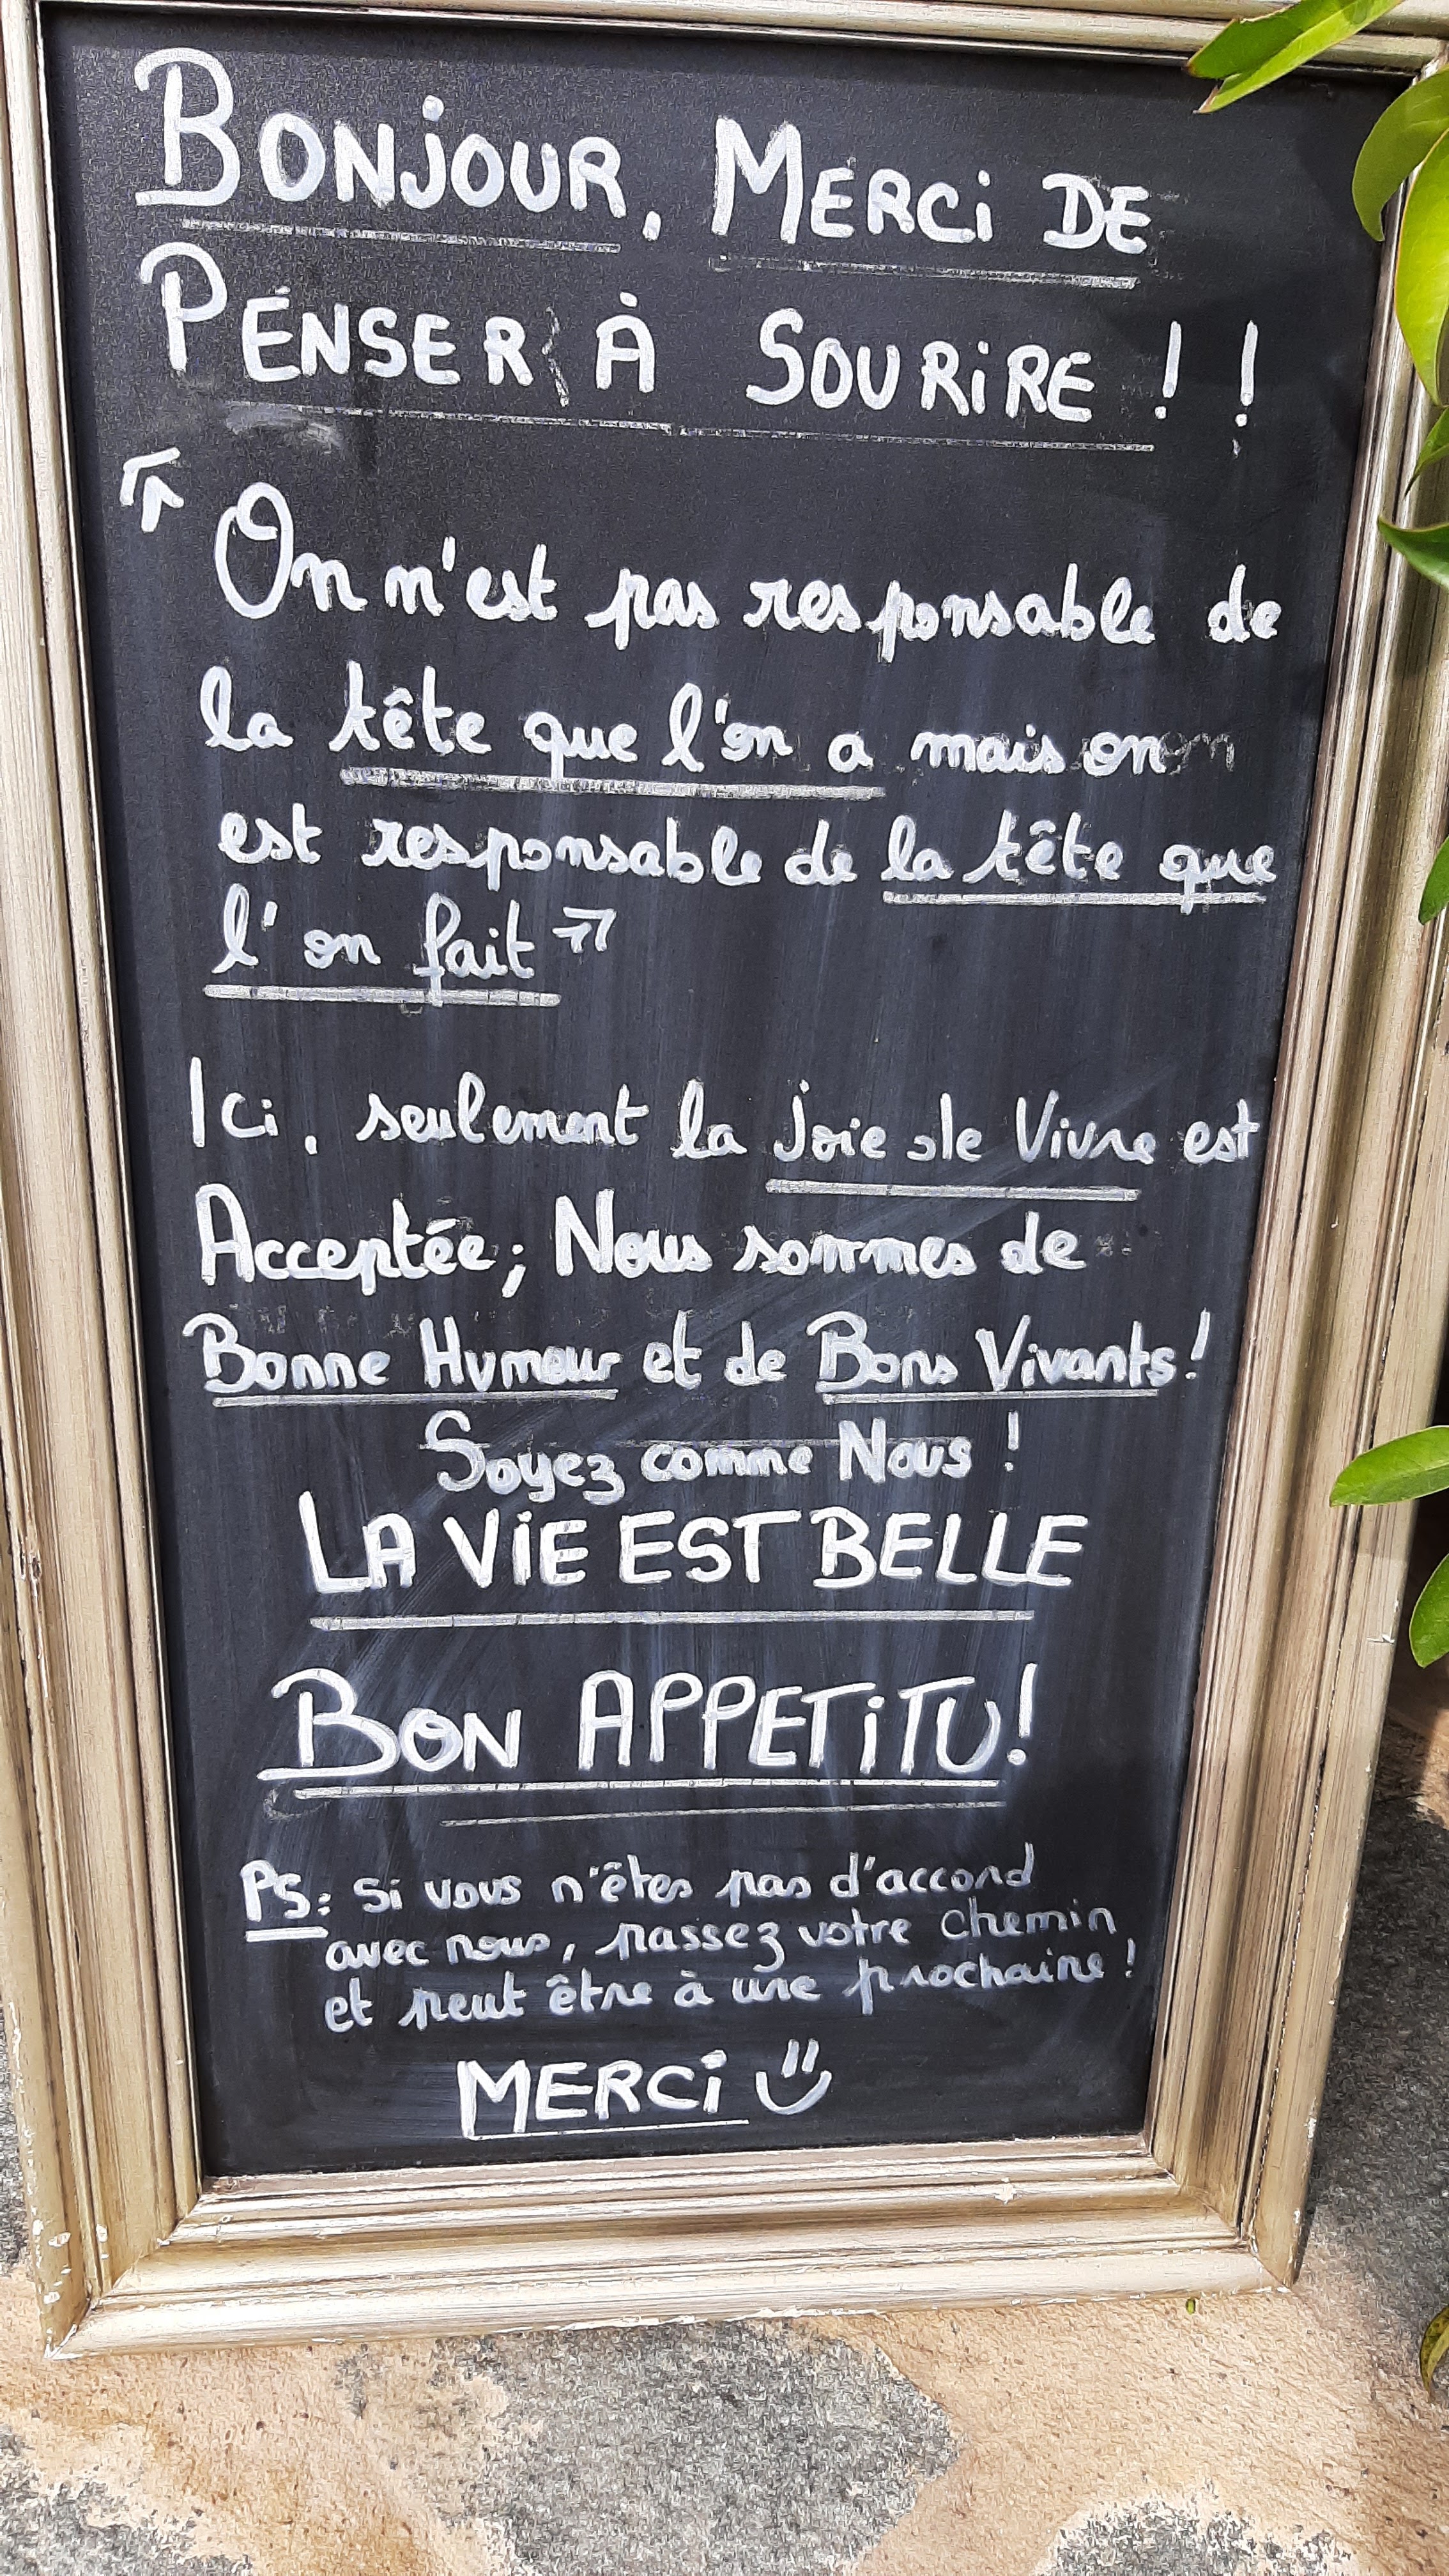 BONJOUR, MERCi DE
PENSER À SOURiRE !!
" On n'est pas responsable de
la tête que l'on a mais on
est responsable de la tête que
l'on fait "
Ici, seulement la joie de Vivre est
Acceptée; Nous sommes de
Bonne Humour et de Bons Vivants!
Soyez comme Nous !
LA ViE EST BELLE
BON APPETiTU!
PS: Si vous n'êtes pas d'accord
avec nous, passez votre chemin
et peut être à une prochaine !
MERCi